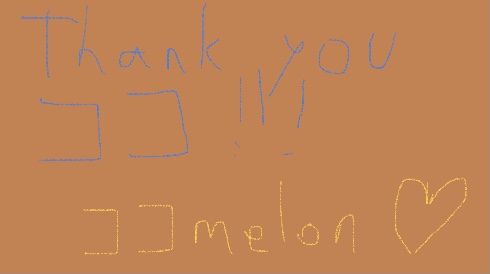 Thank you
ココ!!!
ココmelon ♡